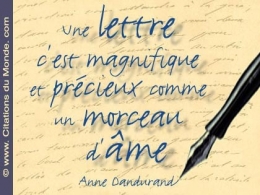 Une lettre
c'est magnifique
et précieux comme
un morceau
d'âme
Anne Dandurand
© www. Citations du Monde. com